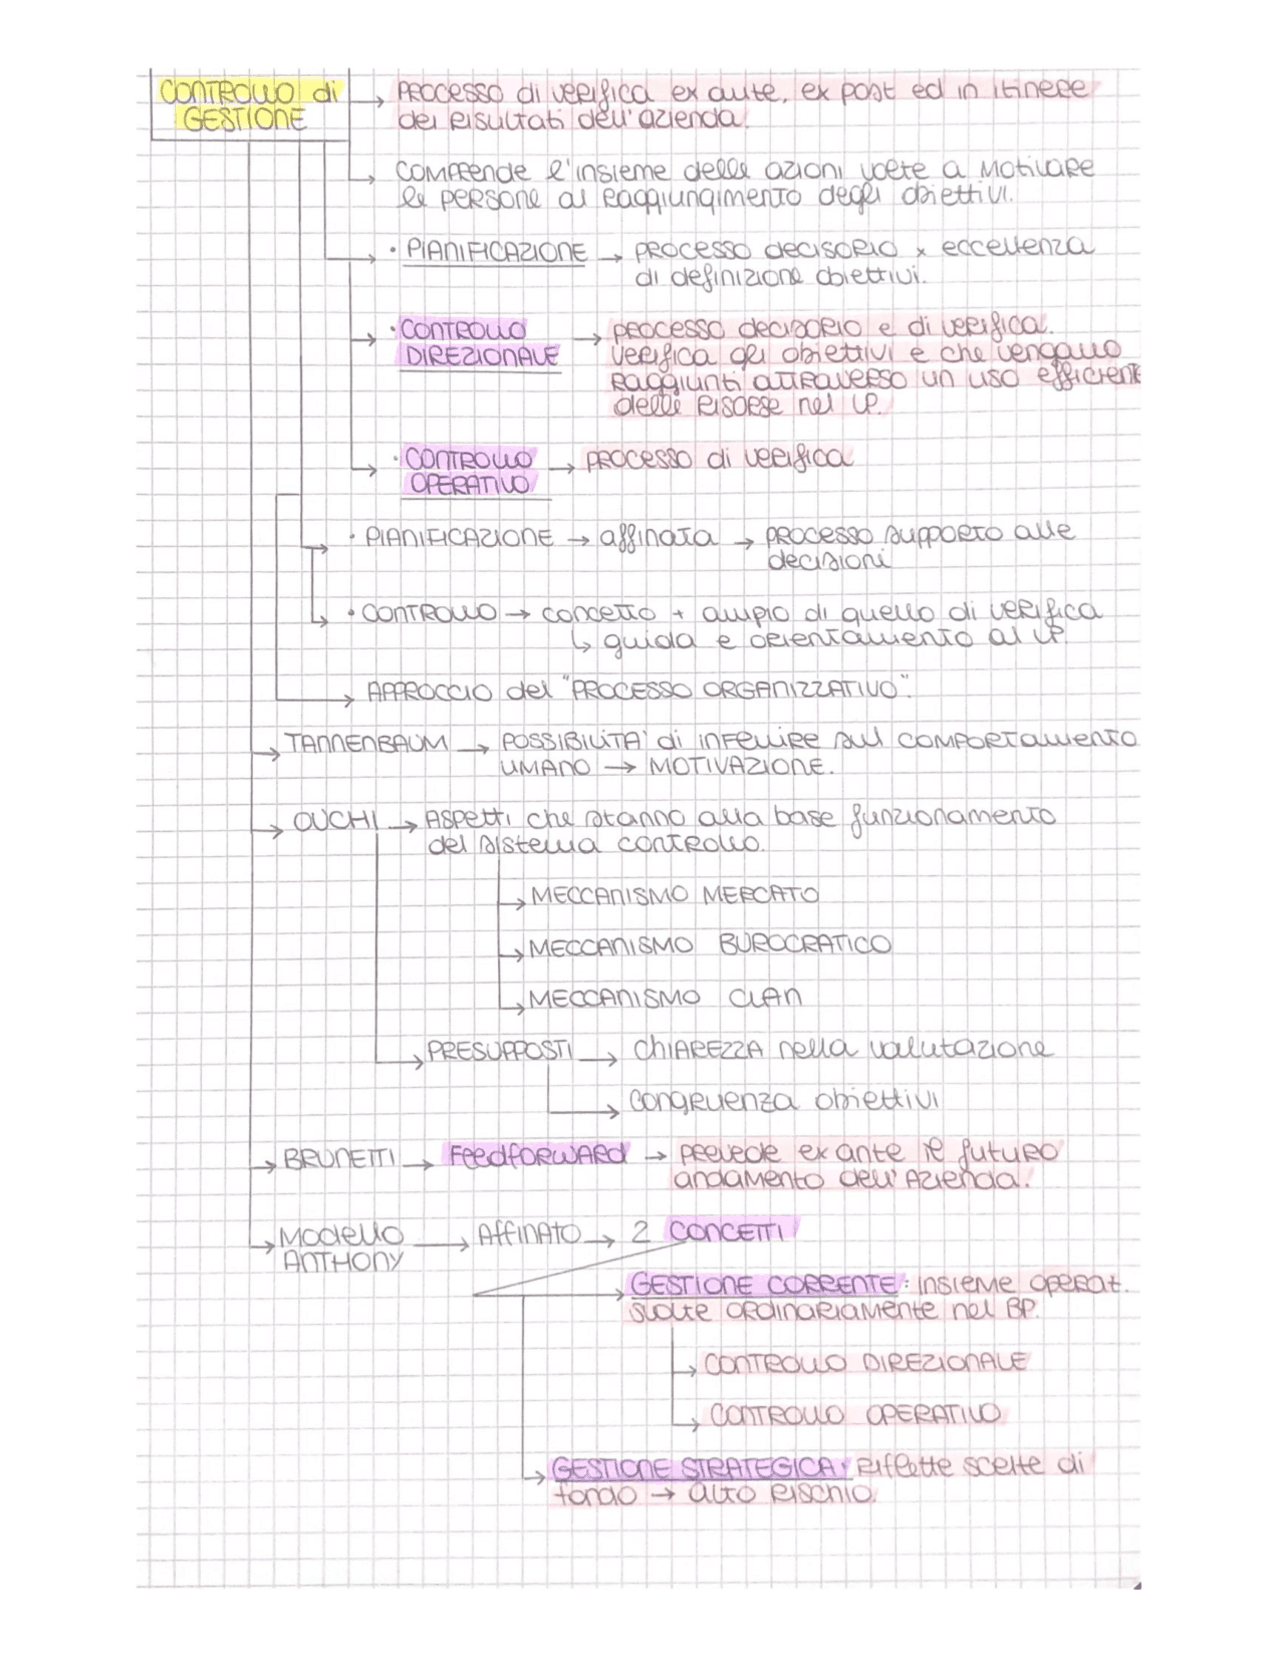 CONTROLLO di
GESTIONE
→ PROCESSO di verifica ex ante, ex post ed in itinere
dei risultati dell'azienda.
→ COMPRENDE l'insieme delle azioni volte a MOTIVARE
le PERSONE al raggiungimento degli obiettivi.
→ · PIANIFICAZIONE → PROCESSO DECISORIO x eccellenza
di definizione obiettivi.
→ · CONTROLLO → PROCESSO decisorio e di verifica.
DIREZIONALE verifica gli obiettivi e che vengano
RAGGIUNTI ATTRAVERSO un uso efficiente
delle RISORSE nel LP.
→ · CONTROLLO → PROCESSO di verifica
OPERATIVO
→ · PIANIFICAZIONE → affinata → PROCESSO supporto alle
decisioni
→ · CONTROLLO → concetto + ampio di quello di verifica
↳ guida e orientamento al LP.
→ APPROCCIO del "PROCESSO ORGANIZZATIVO".
→ TANNENBAUM → POSSIBILITA' di INFLUIRE sul COMPORTAMENTO
UMANO → MOTIVAZIONE.
→ OUCHI → ASPETTI che stanno alla base funzionamento
del sistema controllo.
→ MECCANISMO MERCATO
→ MECCANISMO BUROCRATICO
→ MECCANISMO CLAN
→ PRESUPPOSTI → CHIAREZZA nella valutazione
→ congruenza obiettivi
→ BRUNETTI → FeedFORWARD → prevede ex ante il futuro
andamento dell'Azienda.
→ Modello → AFFINATO → 2 CONCETTI
ANTHONY
→ GESTIONE CORRENTE: insieme operat.
svolte ORDINARIAMENTE nel BP.
→ CONTROLLO DIREZIONALE
→ CONTROLLO OPERATIVO
→ GESTIONE STRATEGICA: Riflette scelte di
fondo → alto RISCHIO.